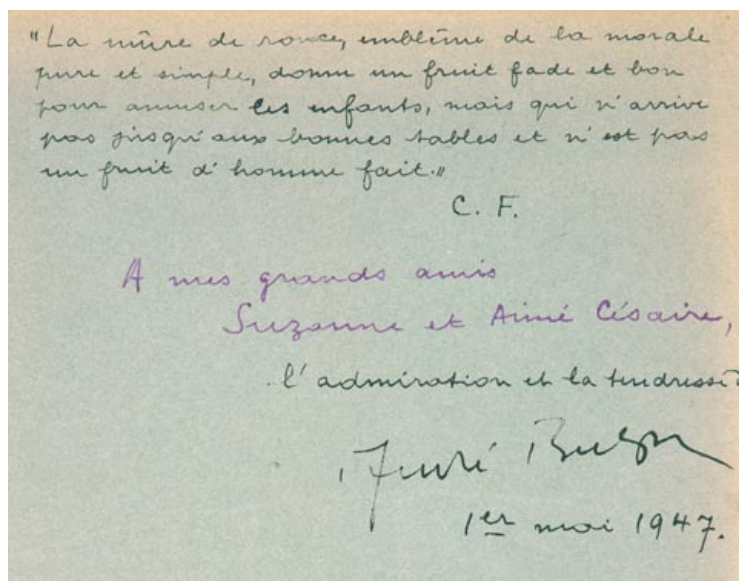 "La mûre de ronce, emblème de la morale
pure et simple, donne un fruit fade et bon
pour amuser les enfants, mais qui n'arrive
pas jusqu'aux bonnes tables et n'est pas
un fruit d'homme fait."
C. F.
A mes grands amis
Suzanne et Aimé Césaire,
l'admiration et la tendresse
André Breton
1er mai 1947.